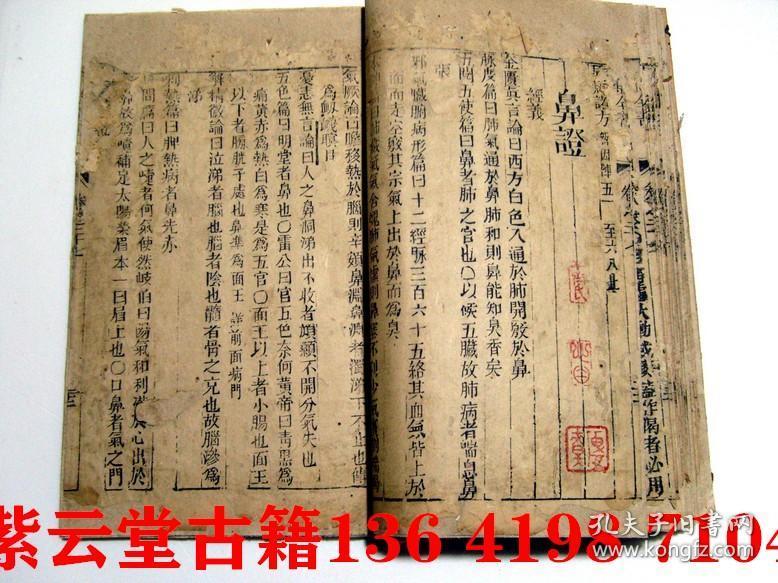 鼻證
經義
金匱真言論曰西方白色入通於肺開竅於鼻
脉度篇曰肺氣通於鼻肺和則鼻能知臭香矣
五閱五使篇曰鼻者肺之官也〇以候五臟故肺病者喘息鼻
張
邪氣臟腑病形篇曰十二經脉三百六十五絡其血氣皆上於
面而走空竅其宗氣上出於鼻而為臭
氣厥論曰膽移熱於腦則辛頞鼻淵鼻淵者濁涕下不止也傳
為衄衊瞑目
憂恚無言論曰人之鼻洞涕出不收者頏顙不開分氣失也
五色篇曰明堂者鼻也〇雷公曰官五色奈何黃帝曰青黑為
痛黃赤為熱白為寒是為五官〇面王以上者小腸也面王
以下者膀胱子處也鼻準為面王 詳前面病門
解精微論曰泣涕者腦也腦者陰也髓者骨之充也故腦滲為
涕
刺熱篇曰脾熱病者鼻先赤
口問篇曰人之嚏者何氣使然岐伯曰陽氣和利滿於心出於
鼻故為嚏補足太陽榮眉本一曰眉上也〇口鼻者氣之門
紫云堂古籍136 4198 7104
孔夫子旧书网
www.kongfz.com